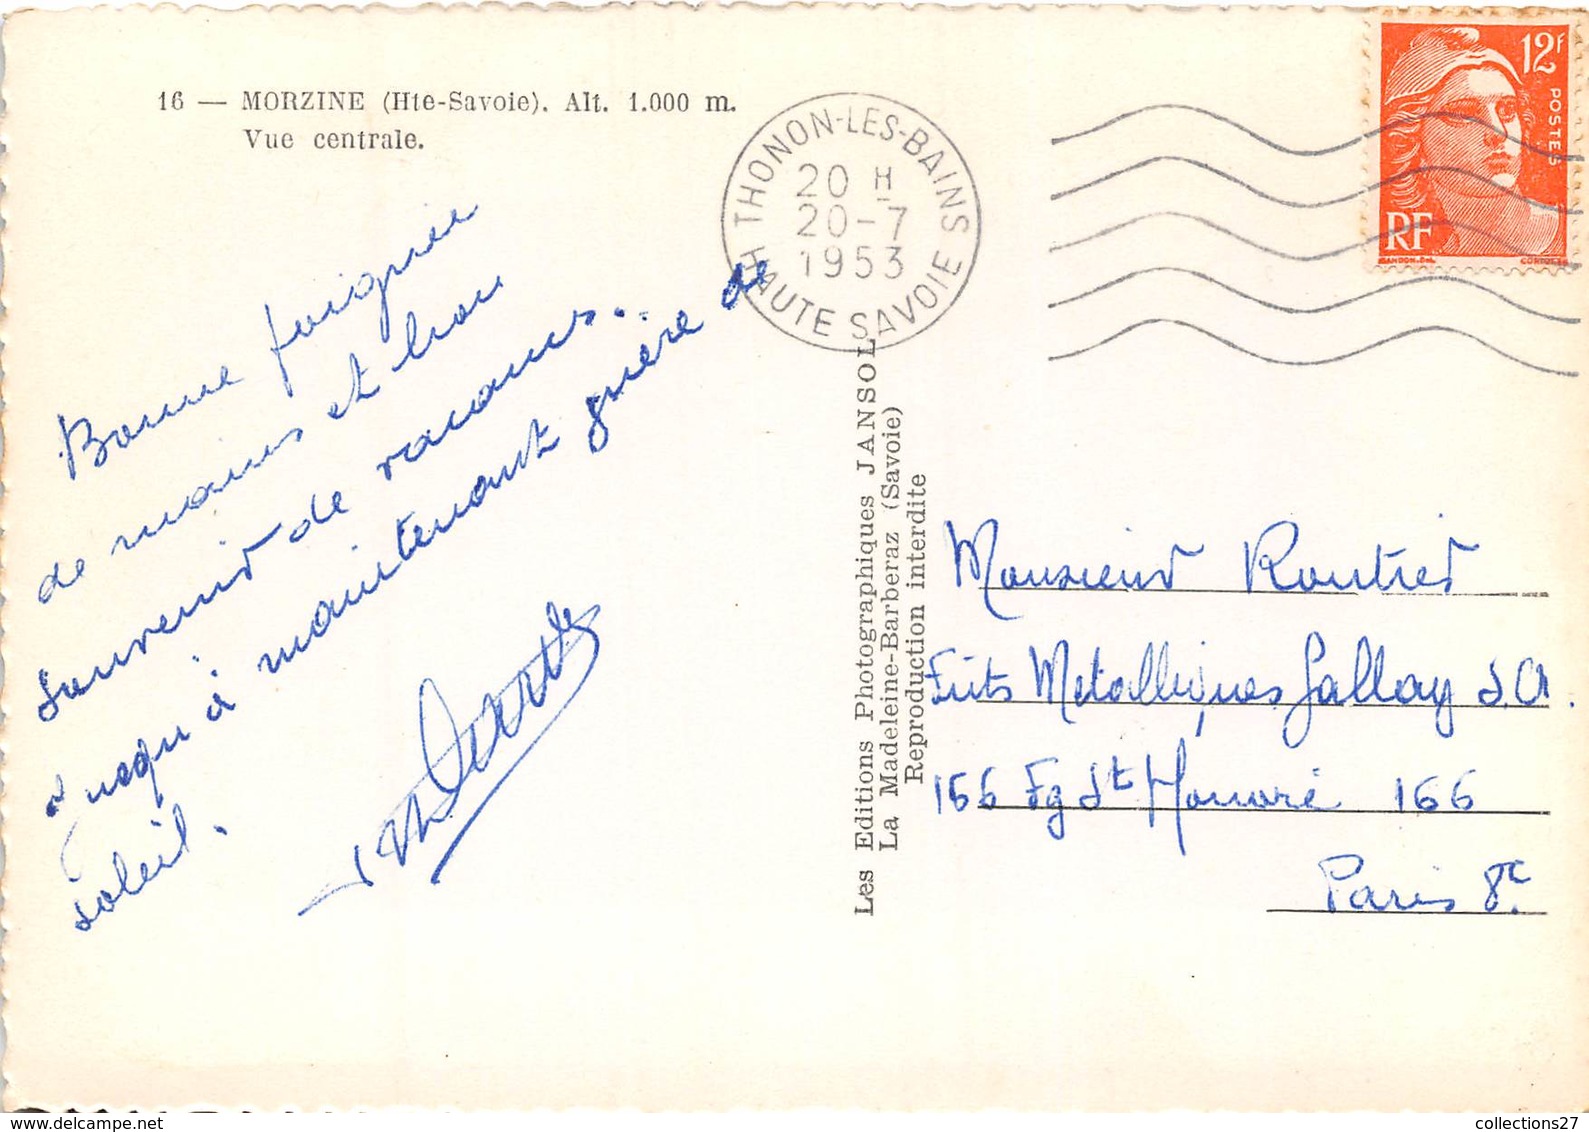 16 — MORZINE (Hte-Savoie). Alt. 1.000 m.
Vue centrale.
Bonne poignée
de mains et bon
souvenir de vacances..
Jusqu'à maintenant guère de
soleil.
THONON-LES-BAINS
20 H
20-7
1953
HAUTE SAVOIE
12F
POSTES
RF
GANDON.DEL.
CORTOT.SC
Les Editions Photographiques JANSOL
La Madeleine-Barberaz (Savoie)
Reproduction interdite
Monsieur Routier
Fûts Métalliques Gallay S.A.
166 Fg St Honoré 166
Paris 8e
www.delcampe.net
collections27